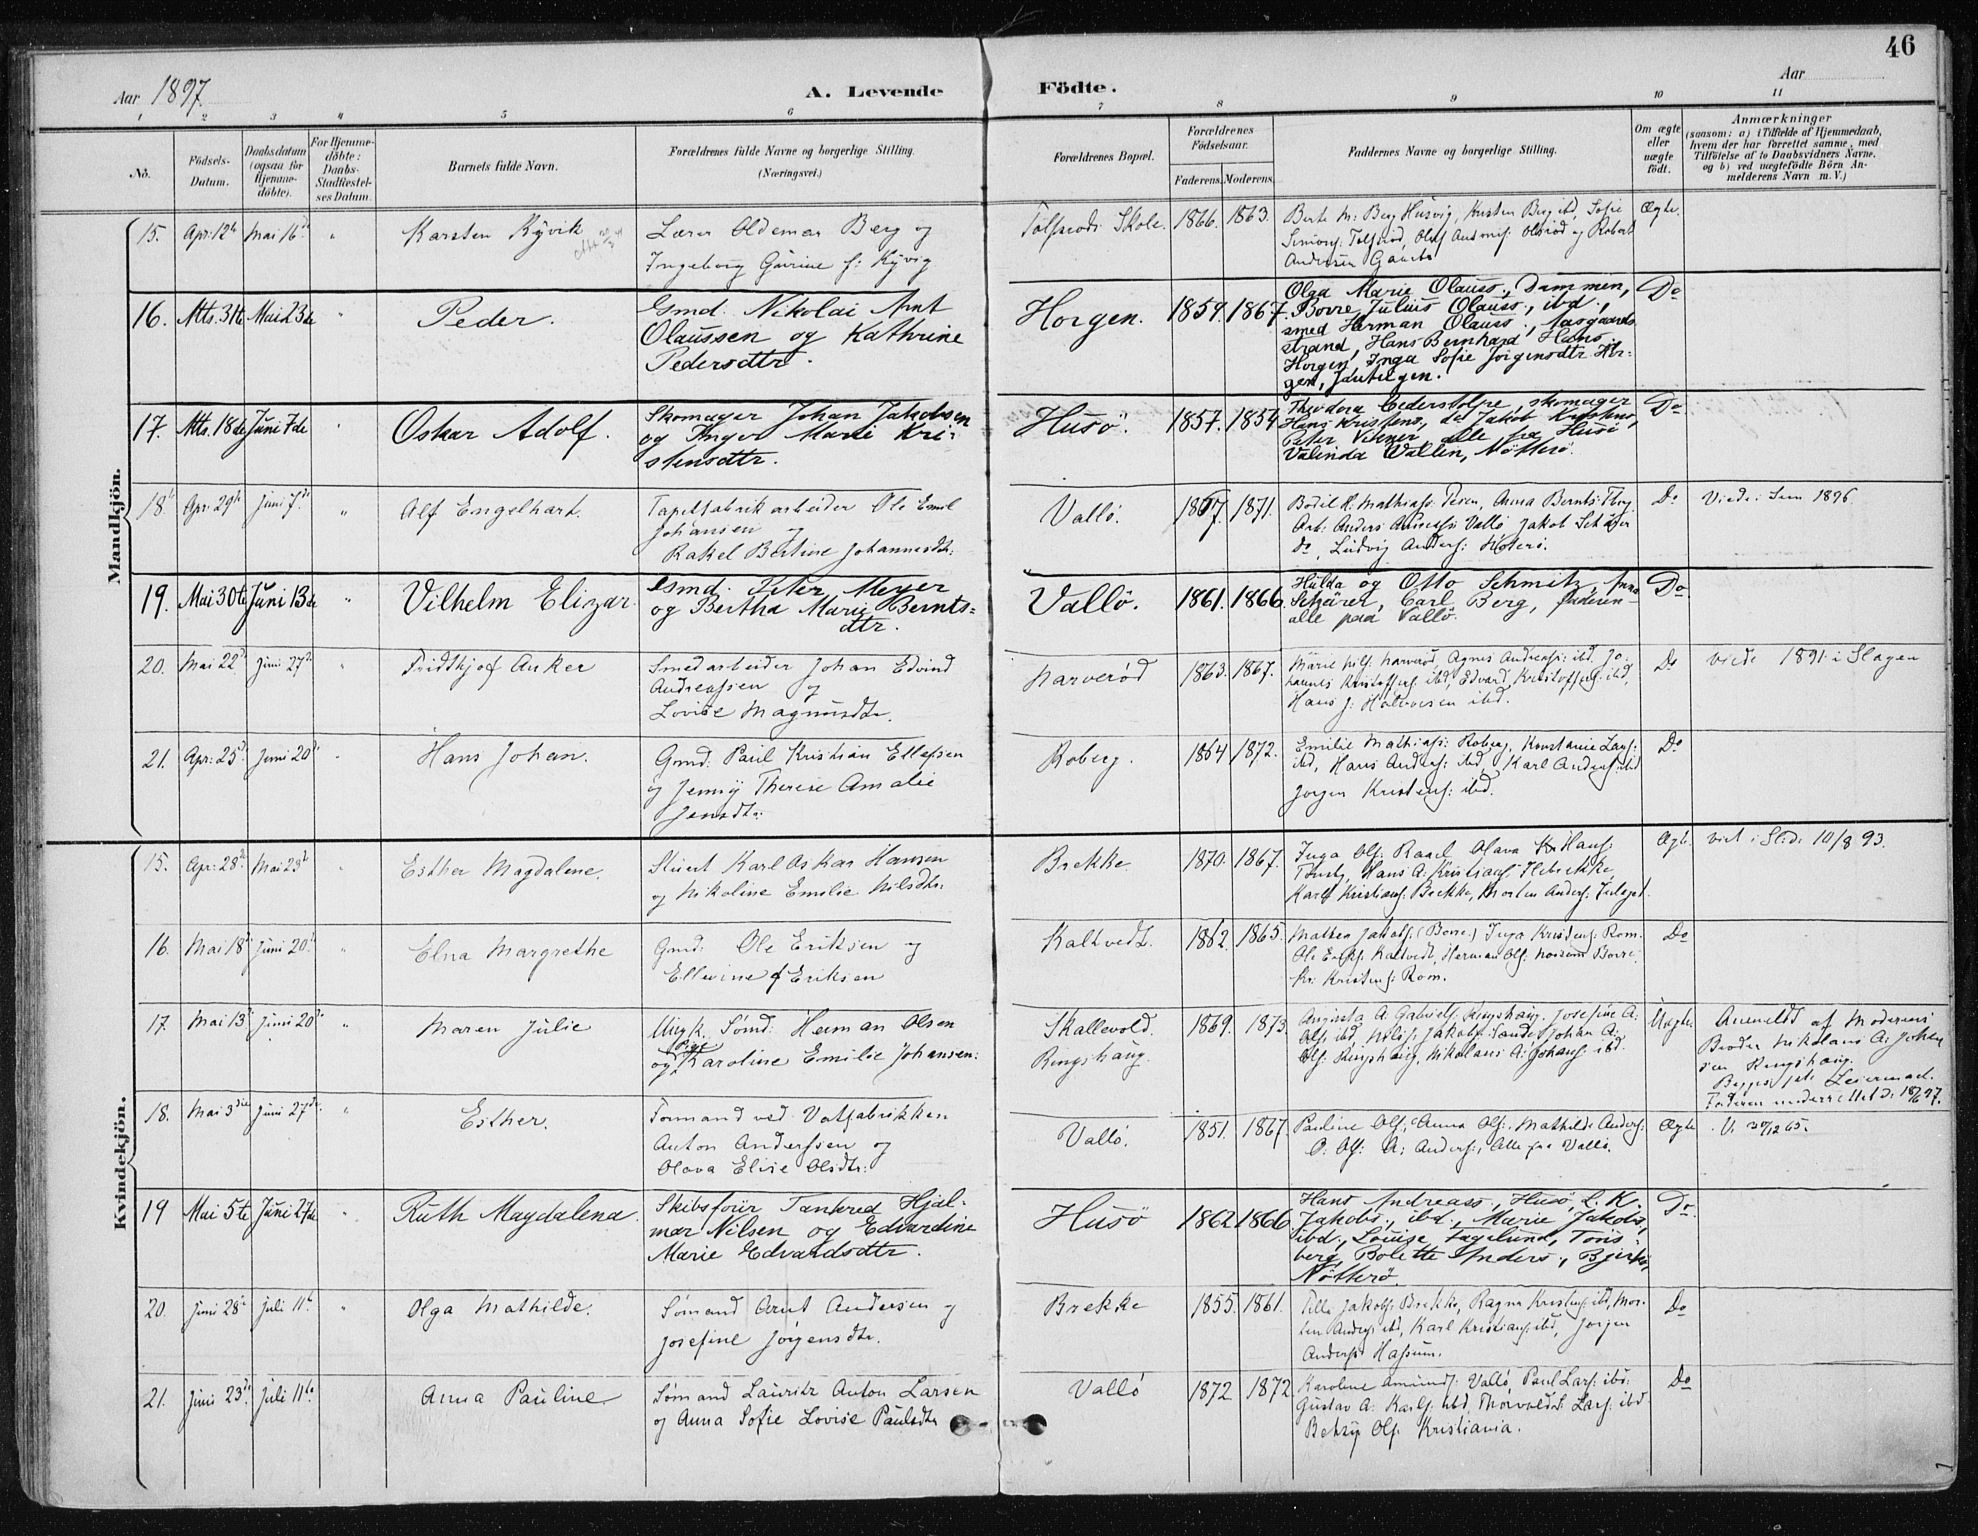 46
Aar 1897.
A. Levende
Födte.
Aar
1 2 3 4 5 6 7 8 9 10 11
No.
Födsels-Datum.
Daabsdatum (ogsaa for Hjemme-döbte).
For Hjemme-döbte: Daabs-Stadfestel-ses Datum.
Barnets fulde Navn.
Forældrenes fulde Navne og borgerlige Stilling.
(Næringsvei.)
Forældrenes Bopæl.
Forældrenes Födselsaar.
Faderens. Moderens.
Faddernes Navne og borgerlige Stilling.
Om ægte eller uægte födt.
Anmærkninger
(saasom: a) i Tilfælde af Hjemmedaab, hvem der har forrettet samme, med Tilföielse af to Daabsvidners Navne, og b) ved uægtefödte Börn An-melderens Navn m. V.)
Mandkjön.
15. Apr: 12te Mai 16de " Karsten Ryvik
Lærer Oldemar Berg og
Ingeborg Gurine f: Ryvig
Tolfsrods Skole. 1866. 1863.
Berte M: Berg Husvig, Kristen Berg ibd, Sofie
Simons: Tolfsrød, Olaf Antonis: Olsrød og Robert
Andersen
Ægte.
16. Mts. 31te Mai 23de " Peder.
Gmd. Nikolai Arnt
Olaussen og Kathrine
Pedersdtr.
Horgen. 1859. 1867.
Olga Marie Olauss., Dammen,
Borre, Julius Olauss., ibd.,
smed Herman Olauss., Aasgaard-
strand, Hans Bernhard Hans.
Horgen, Inga Sofie Jörgensdtr Hor-
gen,
Do
17. Mts. 18de Juni 7de " Oskar Adolf.
Skomager Johan Jakobsen
og Inger Marie Kri-
stensdtr.
Husö. 1857. 1854
Theodora Cederstolpe, skomager
Hans Kristens., do Jakob Kristens,
Peter Verner alle fra Husö
Valinda Wallin, Nötterö.
Do
18. Apr: 29de Juni 7de " Alf Engelhart.
Tapetfabrikarbeider Ole Emil
Johansen og
Rakel Bertine Johannesdtr:
Vallö. 1867. 1871.
Bodil K. Mathias: , Anna Bernts:
Arb. Anders Andreas: Vallö Jakob Schärer
Do, Ludvig Anders:
Do Viede: Sem 1896
19. Mai 30te Juni 13de " Vilhelm Elizar.
Gmd. Peter Meyer
og Bertha Marie Bernts-
dtr.
Vallö. 1861. 1866.
Hulda og Otto Schmitz, Anna
Schärer, Carl Berg, faderen-
alle paa Vallö.
Do
20. Mai 22de Juni 27de " Fridthjof Anker
Smedarbeider Johan Edvind
Andreassen og
Lovise Magnusdtr.
Narverød 1863. 1867.
Marie Narverød, Agnes Andreas: ibd. Jo-
hannes Kristoffers: ibd, Edvard Kristoffers: ibd,
Hans J: Halvorsen ibd.
Do Viede 1891 i Slagen
21. Apr: 25de Juni 20de " Hans Johan.
Gmd: Paul Kristian Ellefsen
og Jenny Therese Amalie
Jensdtr:
Roberg. 1864 1872.
Emilie Mathias: Roberg, Konstanse Lars:
ibd, Hans Anders: ibd, Karl Anders: ibd
Jorgen Kristens: ibd.
Do
Kvindekjön.
15. Apr: 28de Mai 23de " Esther Magdalene.
Stuert Karl Oskar Hansen
og Nikoline Emilie Nilsdtr:
Brekke. 1870. 1867.
Inga Ols: Olava Hans:
Hans A: Kristians:
Karl Kristians: Brekke, Morten Anders:
Ægte. viet i 10/8 93.
16. Mai 18de Juni 20de " Elna Margrethe
Gmd: Ole Eriksen og
Ellevine f Eriksen
Kaltvedt. 1862. 1865.
Mathea Jakobs: (Borre) Inga Kristens: Rom.
Ole Eriks: Kaltvedt, Herman Ols: Borre,
Kr: Kristens: Rom.
Do
17. Mai 13de Juni 20de " Maren Julie
Ungk. Sømd: Herman Olsen
og Pige Karoline Emilie Johansen:
Skallevold.
Ringshaug. 1869. 1873.
Augusta A. Gabriels: Ringshaug. Josefine A:
Ols: ibd, Nils Jakobs: Sande, Johan A:
Ols: Ringshaug, Nikolaus A: Johans: ibd.
Uægte.
Anmeldt af Moderens
Broder Nikolaus A: Johan
sen Ringshaug.
Begges 1ste Leiermaal.
Faderen underrettet d: 18/6 97.
18. Mai 3die Juni 27de " Esther.
Formand ved Vatfabrikken
Anton Anderssen og
Olava Elise Olsdtr:
Vallö. 1851. 1867
Pauline Ols:, Anna Ols:, Mathilde Anders:
O: Ols: A: Anders:, alle fra Vallö.
Ægte
19 Mai 5te Juni 27de " Ruth Magdalena.
Skibsförer Tankred Hjal-
mar Nilsen og Edvardine
Marie Edvardsdtr.
Husö 1862 1866
Hans Andreass., Husö L. K.
Jakobs., ibd., Marie Jakobs,
ibd., Louise Fagelund, Töns-
berg, Bolette Anders., Bjerkö,
Nötterö.
Do.
20. Juni 28de Juli 11te " Olga Mathilde.
Sømand Arnt Andersen og
Josefine Jørgensdtr.
Brekke 1855. 1861.
Tilla Jakobs: Brekke, Ragna Kristens: ibd, Mor-
ten Anders: ibd, Karl Kristians: ibd, Jorgen
Anders: Hassum.
Do
21. Juni 23de Juli 11te. Anna Pauline.
Sømand Lauritz Anton Larsen
og Anna Sofie Lovise Paulsdtr
Vallö 1872 1872
Karoline Amunds: Vallö, Paul Lars: ibd:
Gustav A: Karls: ibd, Thorvald Lars: ibd
Betsy Ols: Kristiania.
Do